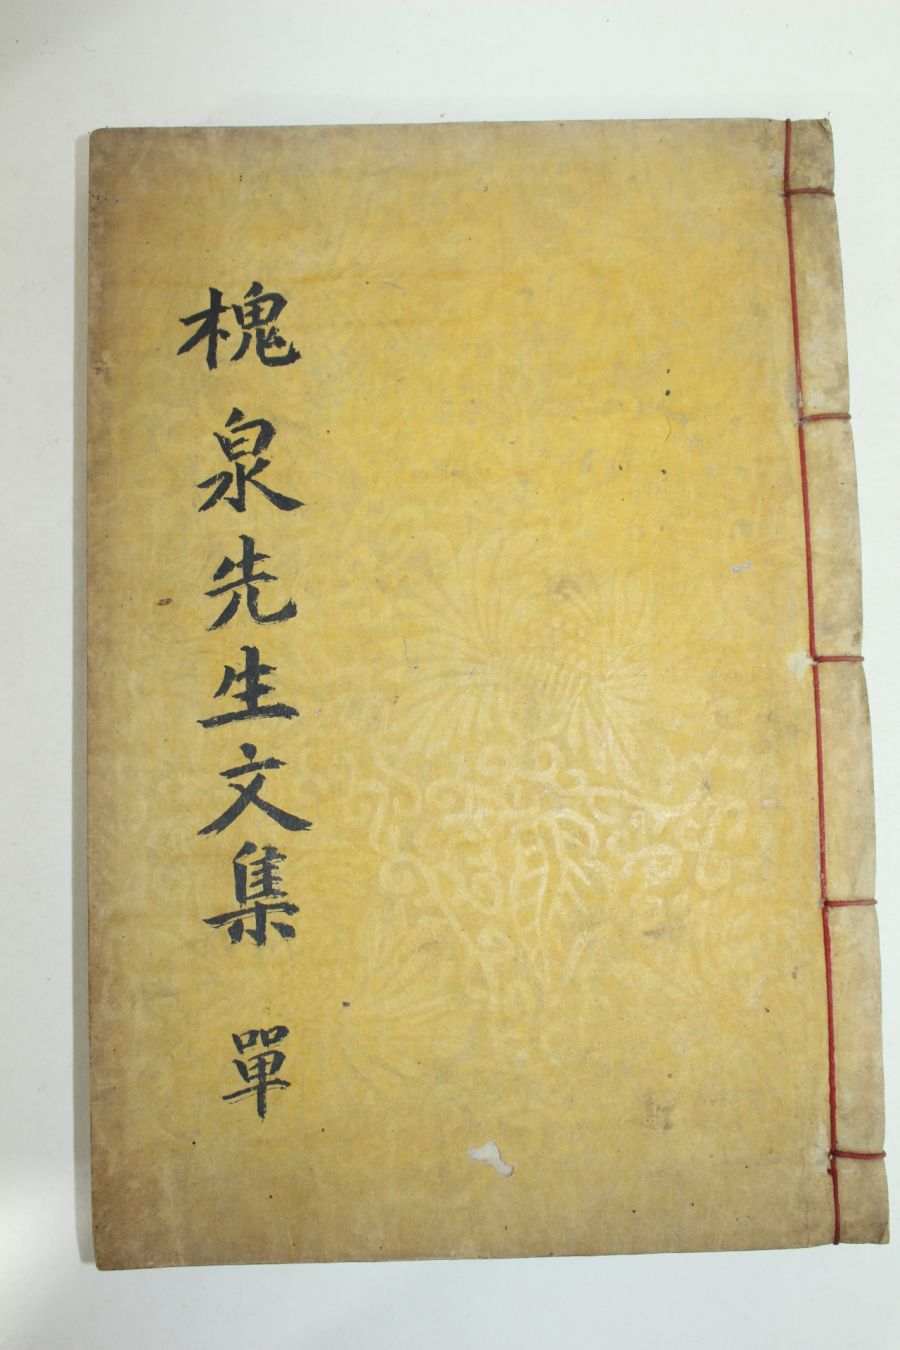 槐泉先生文集 單